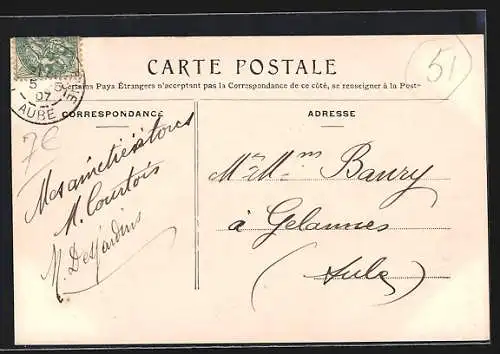 CARTE POSTALE
51
Certains Pays Étrangers n'acceptant pas la Correspondance de ce côté, se renseigner à la Poste
5 -5
07
AUBE
CORRESPONDANCE
ADRESSE
7€
Mes amitiés à tous
M. Courtois
M. Desjardins
Mr & Mme Baury
à Gelannes
(Aube)